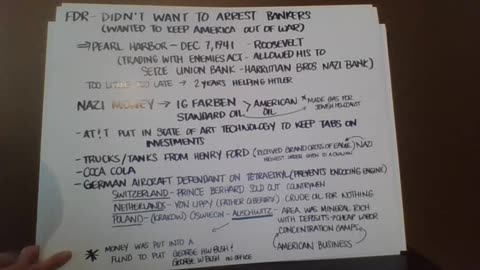 FDR - DIDN'T WANT TO ARREST BANKERS
(WANTED TO KEEP AMERICA OUT OF WAR)
⇒ PEARL HARBOR - DEC 7, 1941 - ROOSEVELT
(TRADING WITH ENEMIES ACT - ALLOWED HIS TO
SEIZE UNION BANK - HARRIMAN BROS NAZI BANK)
TOO LITTLE TOO LATE → 2 YEARS HELPING HITLER
NAZI MONEY → IG FARBEN > AMERICAN OIL * MADE GAS FOR
STANDARD OIL JEWISH HOLOCAUST
- AT&T PUT IN STATE OF ART TECHNOLOGY TO KEEP TABS ON
INVESTMENTS
- TRUCKS/TANKS FROM HENRY FORD (RECEIVED GRAND CROSS OF EAGLE) NAZI
HIGHEST ORDER GIVEN TO A CIVILIAN
- COCA COLA
- GERMAN AIRCRAFT DEPENDANT ON TETRAETHYL (PREVENTS KNOCKING ENGINE)
SWITZERLAND - PRINCE BERHARD SOLD OUT COUNTRYMEN
NETHERLANDS - VON LIPPY (FATHER CRUDE OIL FOR NOTHING
POLAND - (KRAKOW) OSWIECIN - AUSCHWITZ - AREA WAS MINERAL RICH
WITH DEPOSITS + CHEAP LABOR
CONCENTRATION CAMPS
AMERICAN BUSINESS
* MONEY WAS PUT INTO A
FUND TO PUT GEORGE HW BUSH &
GEORGE W BUSH IN OFFICE